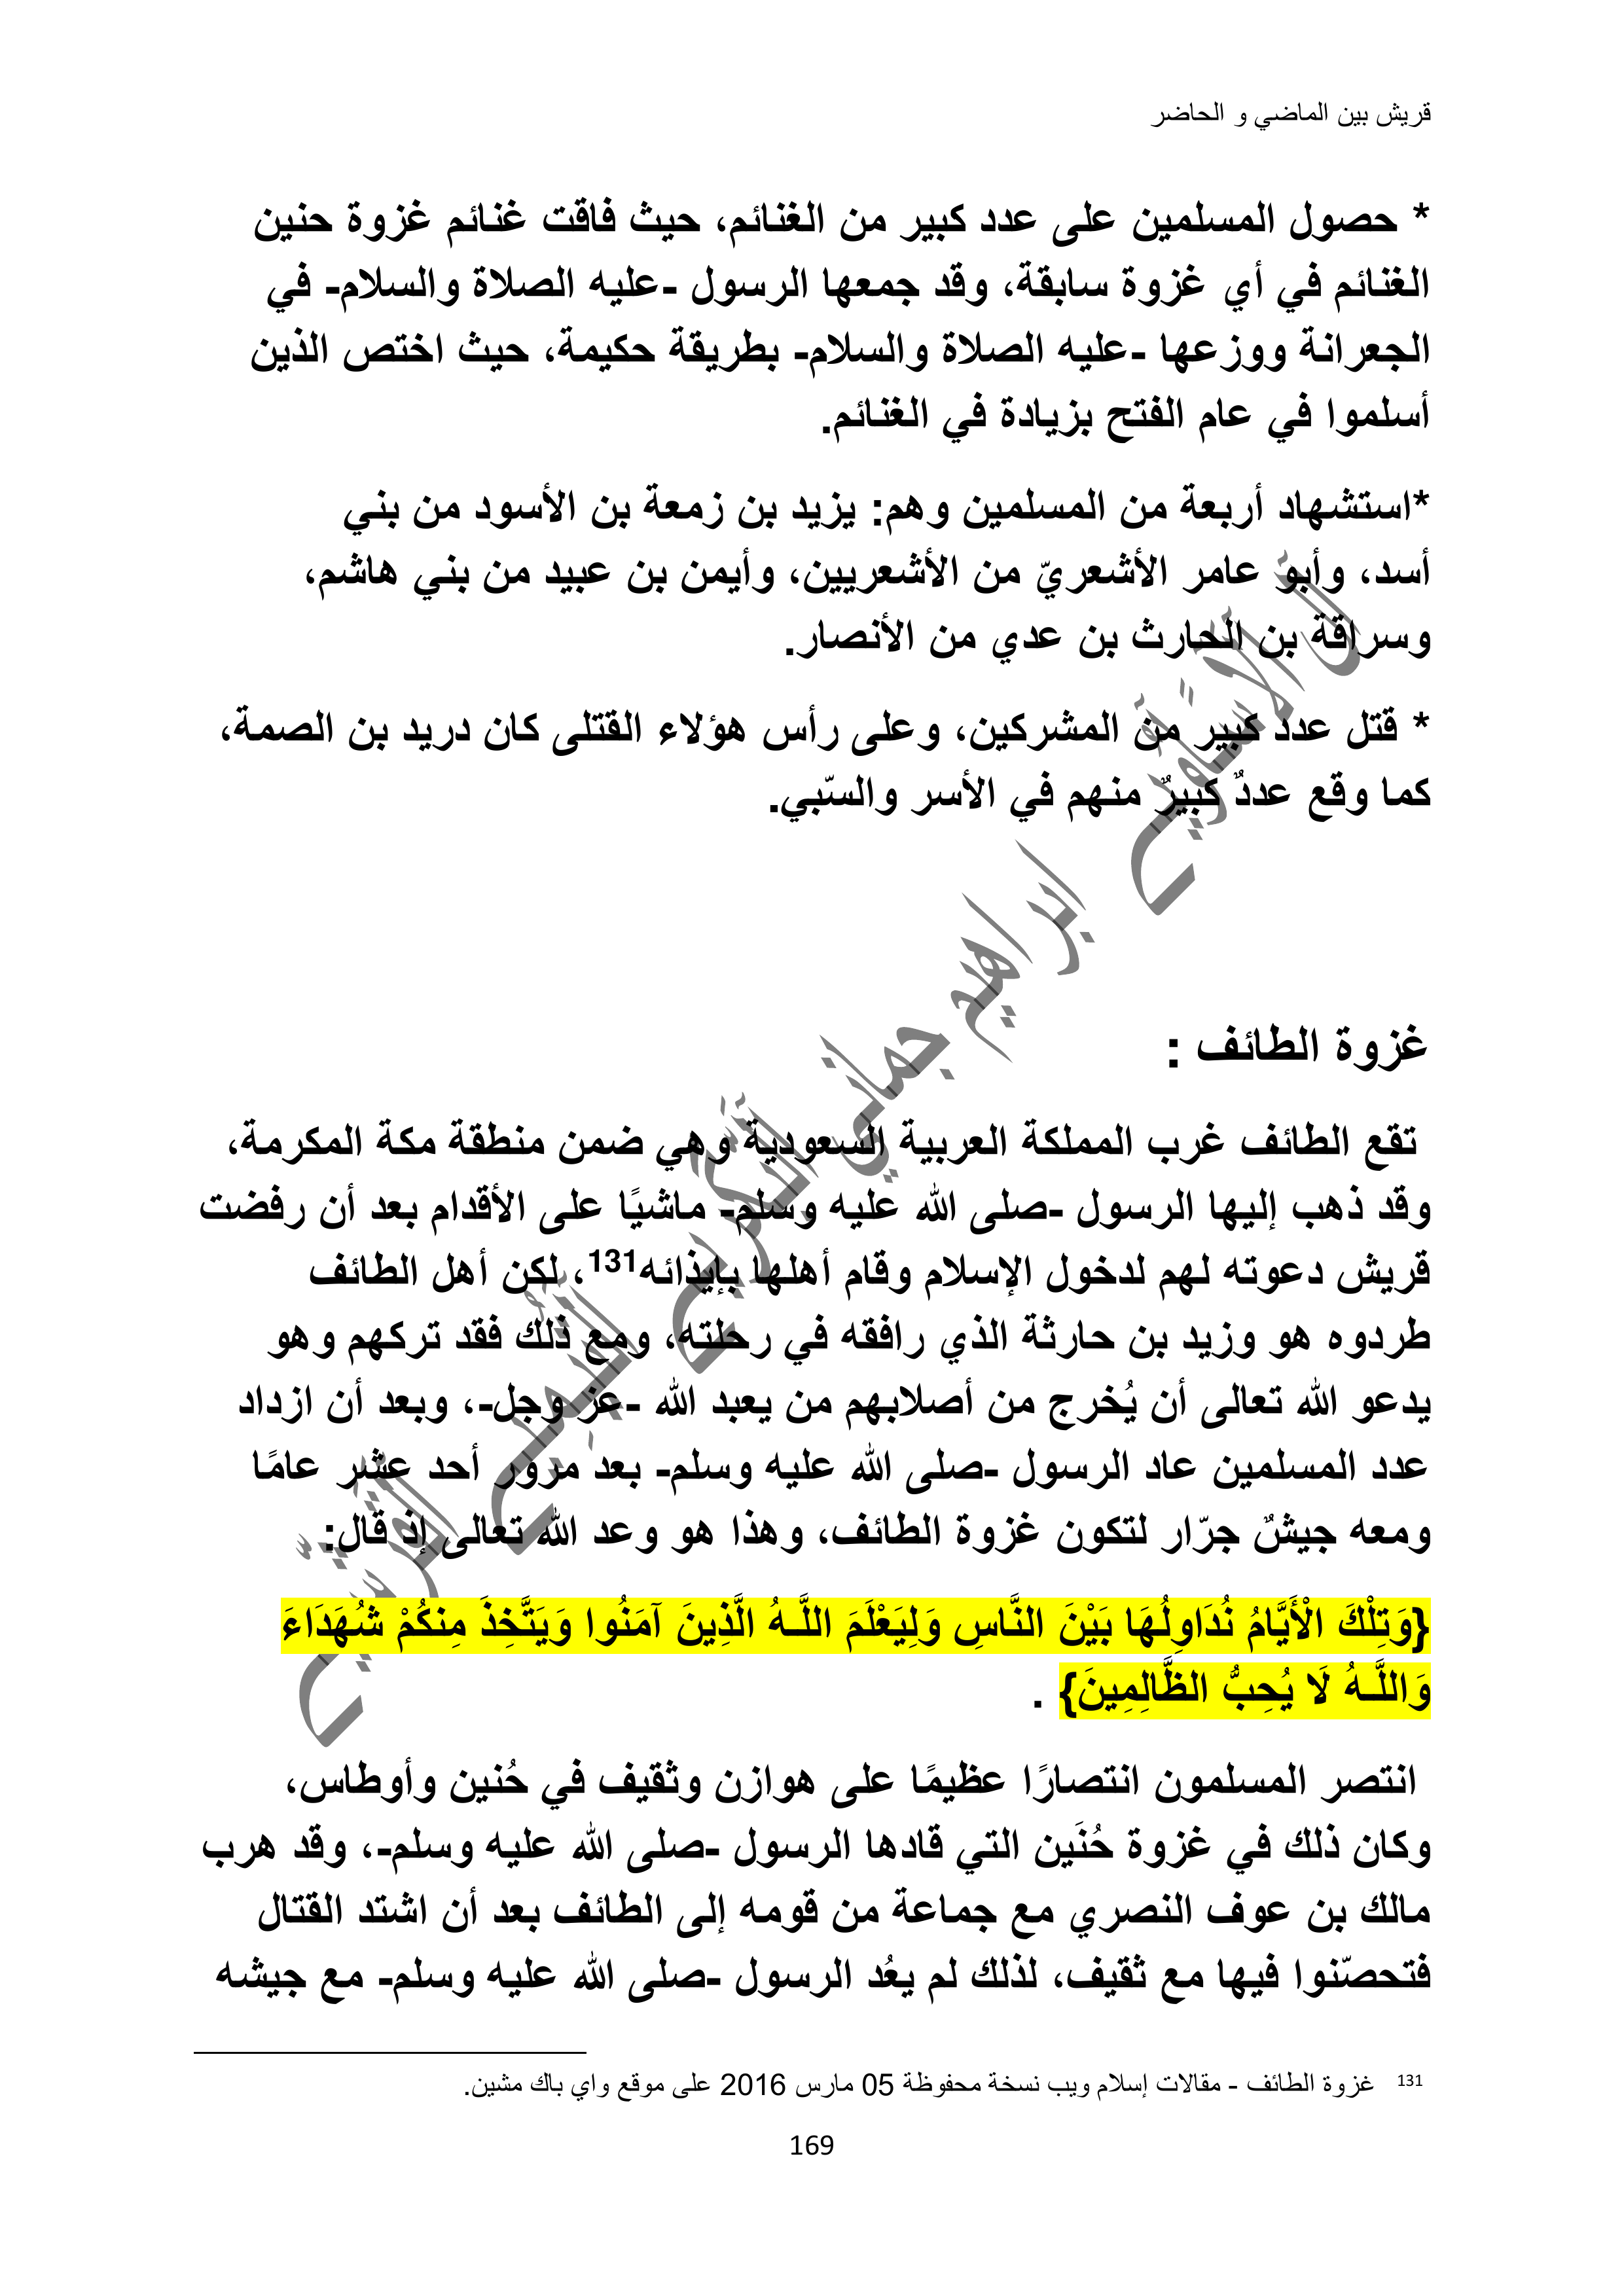 قريش بين الماضي و الحاضر
* حصول المسلمين على عدد كبير من الغنائم، حيث فاقت غنائم غزوة حنين
الغنائم في أي غزوة سابقة، وقد جمعها الرسول -عليه الصلاة والسلام- في
الجعرانة ووزعها -عليه الصلاة والسلام- بطريقة حكيمة، حيث اختص الذين
أسلموا في عام الفتح بزيادة في الغنائم.
*استشهاد أربعة من المسلمين وهم: يزيد بن زمعة بن الأسود من بني
أسد، وأبو عامر الأشعريّ من الأشعريين، وأيمن بن عبيد من بني هاشم،
وسراقة بن الحارث بن عدي من الأنصار.
* قتل عدد كبير من المشركين، وعلى رأس هؤلاء القتلى كان دريد بن الصمة،
كما وقع عددٌ كبيرٌ منهم في الأسر والسّبي.
غزوة الطائف :
تقع الطائف غرب المملكة العربية السعودية وهي ضمن منطقة مكة المكرمة،
وقد ذهب إليها الرسول -صلى الله عليه وسلم- ماشيًا على الأقدام بعد أن رفضت
قريش دعوته لهم لدخول الإسلام وقام أهلها بإيذائه131، لكن أهل الطائف
طردوه هو وزيد بن حارثة الذي رافقه في رحلته، ومع ذلك فقد تركهم وهو
يدعو الله تعالى أن يُخرج من أصلابهم من يعبد الله -عز وجل-، وبعد أن ازداد
عدد المسلمين عاد الرسول -صلى الله عليه وسلم- بعد مرور أحد عشر عامًا
ومعه جيشٌ جرّار لتكون غزوة الطائف، وهذا هو وعد الله تعالى إذ قال:
{وَتِلْكَ الْأَيَّامُ نُدَاوِلُهَا بَيْنَ النَّاسِ وَلِيَعْلَمَ اللَّـهُ الَّذِينَ آمَنُوا وَيَتَّخِذَ مِنكُمْ شُهَدَاءَ
وَاللَّـهُ لَا يُحِبُّ الظَّالِمِينَ} .
انتصر المسلمون انتصارًا عظيمًا على هوازن وثقيف في حُنين وأوطاس،
وكان ذلك في غزوة حُنَين التي قادها الرسول -صلى الله عليه وسلم-، وقد هرب
مالك بن عوف النصري مع جماعة من قومه إلى الطائف بعد أن اشتد القتال
فتحصّنوا فيها مع ثقيف، لذلك لم يعُد الرسول -صلى الله عليه وسلم- مع جيشه
131 غزوة الطائف - مقالات إسلام ويب نسخة محفوظة 05 مارس 2016 على موقع واي باك مشين.
169